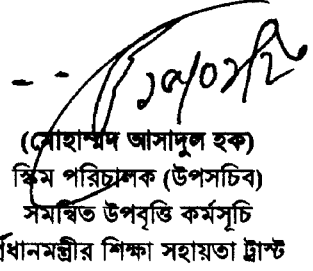 (মোহাম্মদ আসাদুল হক)
স্কিম পরিচালক (উপসচিব)
সমন্বিত উপবৃত্তি কর্মসূচি
র্ধানমন্ত্রীর শিক্ষা সহায়তা ট্রাস্ট